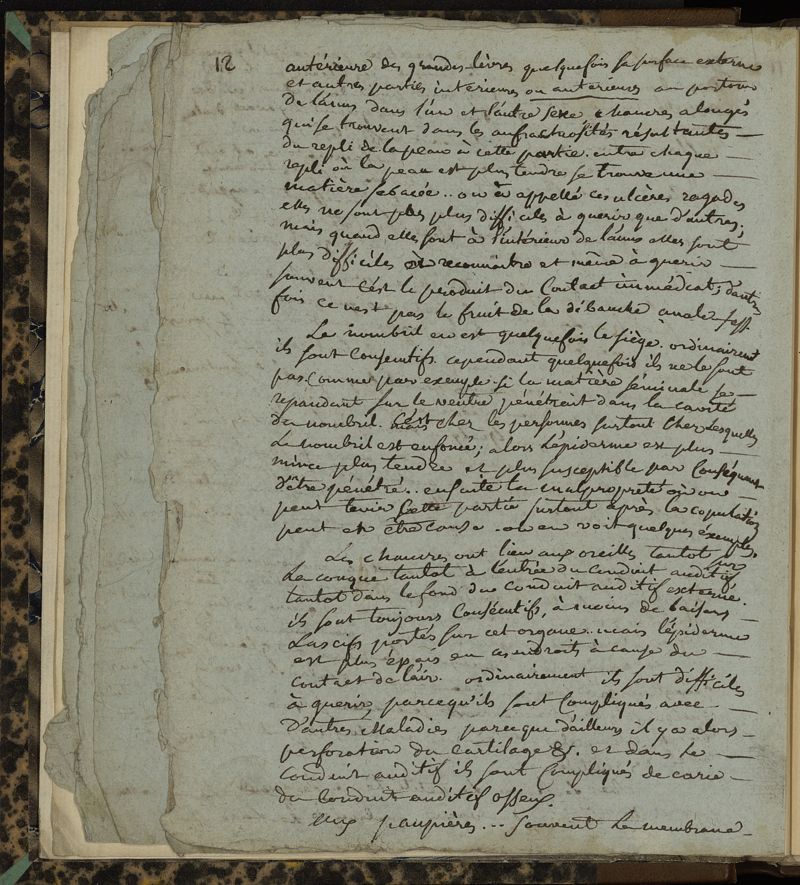 12
antérieure des grandes lèvres quelquefois sa surface externe
et autres parties intérieures ou anterieures au pourtour
de l'anus dans l'un et l'autre sexe chancres alongés
qui se trouvent dans les anfractuosités résultantes
du repli de la peau à cette partie. entre chaque
repli où la peau est plus tendre se trouve une
matière sebacée.. on a appellé ces ulcères ragades
elles ne sont pas plus difficiles à guerir que d'autres;
mais quand elles sont à l'intérieur de l'anus elles sont
plus difficiles à reconnaitre et même à guerir
souvent c'est le produit du Contact immédiat; d'autre
fois ce n'est pas le fruit de la débauche anale
Le nombril en est quelquefois le siège. ordinairement
ils sont Consecutifs. cependant quelquefois ils ne le sont
pas. Comme par exemple si la matière séminale se
repandant sur le ventre pénétrait dans la cavité
du nombril. C'est chez les personnes surtout chez lesquelles
le nombril est enfoncé; alors l'épiderme est plus
mince plus tendre et plus susceptible par Conséquent
d'être pénétré.. ensuite la malpropreté où on
peut tenir Cette partie surtout après la copulation
peut en être cause. on en voit quelques éxemples.
Les chancres ont lieu aux oreilles tantot sur
La conque tantot à l'entrée du conduit auditif
tantot dans le fond du Conduit auditif externe.
ils sont toujours Consécutifs, à moins de baisers
Lascifs portés sur cet organe. mais l'épiderme
est plus épais en ces endroits à cause du
contact de l'air. ordinairement ils sont difficiles
à guerir, parcequ'ils sont Compliqués avec
D'autres Maladies parceque d'ailleurs il y a alors
perforation du Cartilage &. et dans le
Conduit auditif ils sont Compliqués de carie
du Conduit auditif osseux.
Aux paupières... souvent la membrane